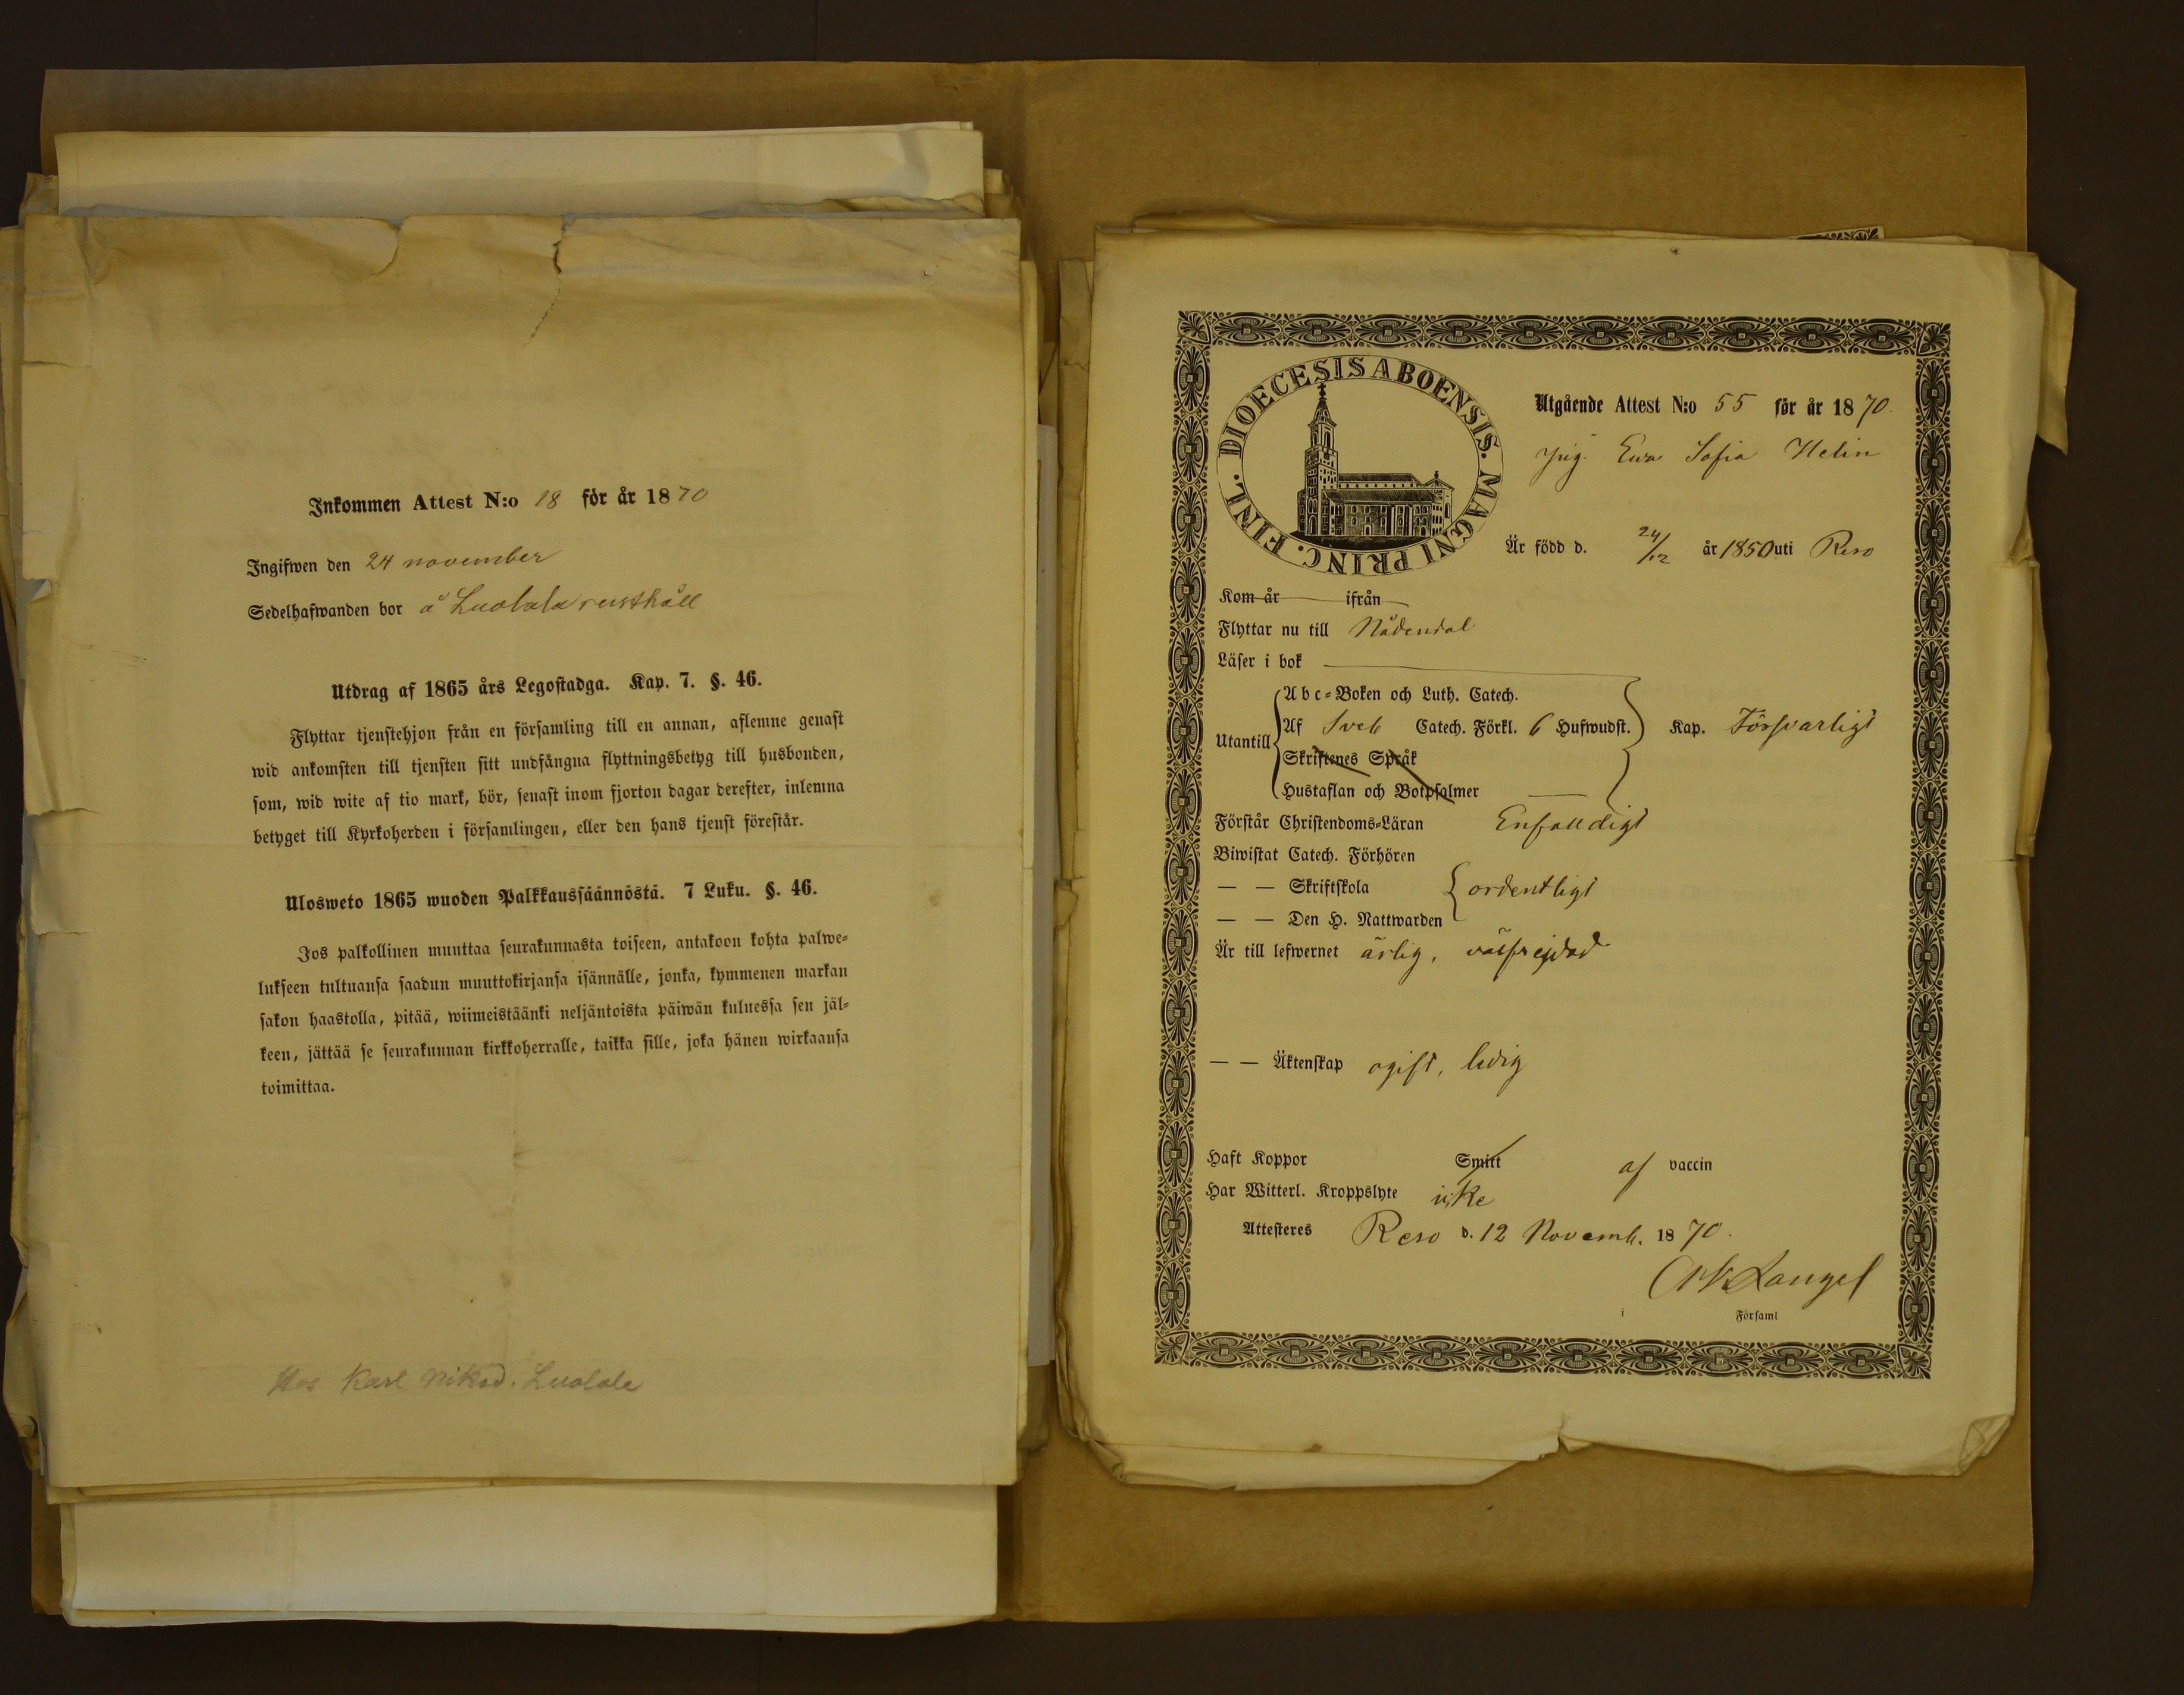 Inkommen Attest N:o 18 för år 1870
Ingifwen den 24 november
Sedelhafwanden bor å Luolala rusthåll
Utdrag af 1865 års Legostadga. Kap. 7. §. 46.
Flyttar tjenstehjon från en församling till en annan, aflemne genast
wid ankomsten till tjensten sitt undfångna flyttningsbetyg till husbonden,
som, wid wite af tio mark, bör, senast inom fjorton dagar derefter, inlemna
betyget till Kyrkoherden i församlingen, eller den hans tjenst förestår.
Ulosweto 1865 wuoden Palkkaussäännöstä. 7 Luku. §. 46.
Jos palkollinen muuttaa seurakunnasta toiseen, antakoon kohta palwe-
lukseen tultuansa saadun muuttokirjansa isännälle, jonka, kymmenen markan
sakon haastolla, pitää, wiimeistäänki neljäntoista päiwän kuluessa sen jäl-
keen, jättää se seurakunnan kirkkoherralle, taikka sille, joka hänen wirkaansa
toimittaa.
Hos Karl Nikod. Luolala
DIOECESIS ABOENSIS. MAGNI PRINC. FINL.
Utgående Attest N:o 55 för år 1870.
Pig. Ewa Sofia Helin
Är född d. 24/12 år 1850 uti Reso
Kom år ifrån
Flyttar nu till Nådendal
Läser i bok
Utantill
Abc-Boken och Luth. Catech.
Af Sveb Catech. Förkl. 6 Hufwudst. Kap. Försvarligt
Skriftenes Språk
Hustaflan och Botpsalmer
Förstår Christendoms-Läran Enfalldigt
Biwistat Catech. Förhören
— — Skriftskola ordentligt
— — Den H. Nattwarden
Är till lefwernet ärlig, välfrejdad
— — Äktenskap ogift, ledig
Haft Koppor Smitt af vaccin
Har Witterl. Kroppslyte icke
Attesteres Reso d. 12 Novemb. 1870.
Langel
i Församl